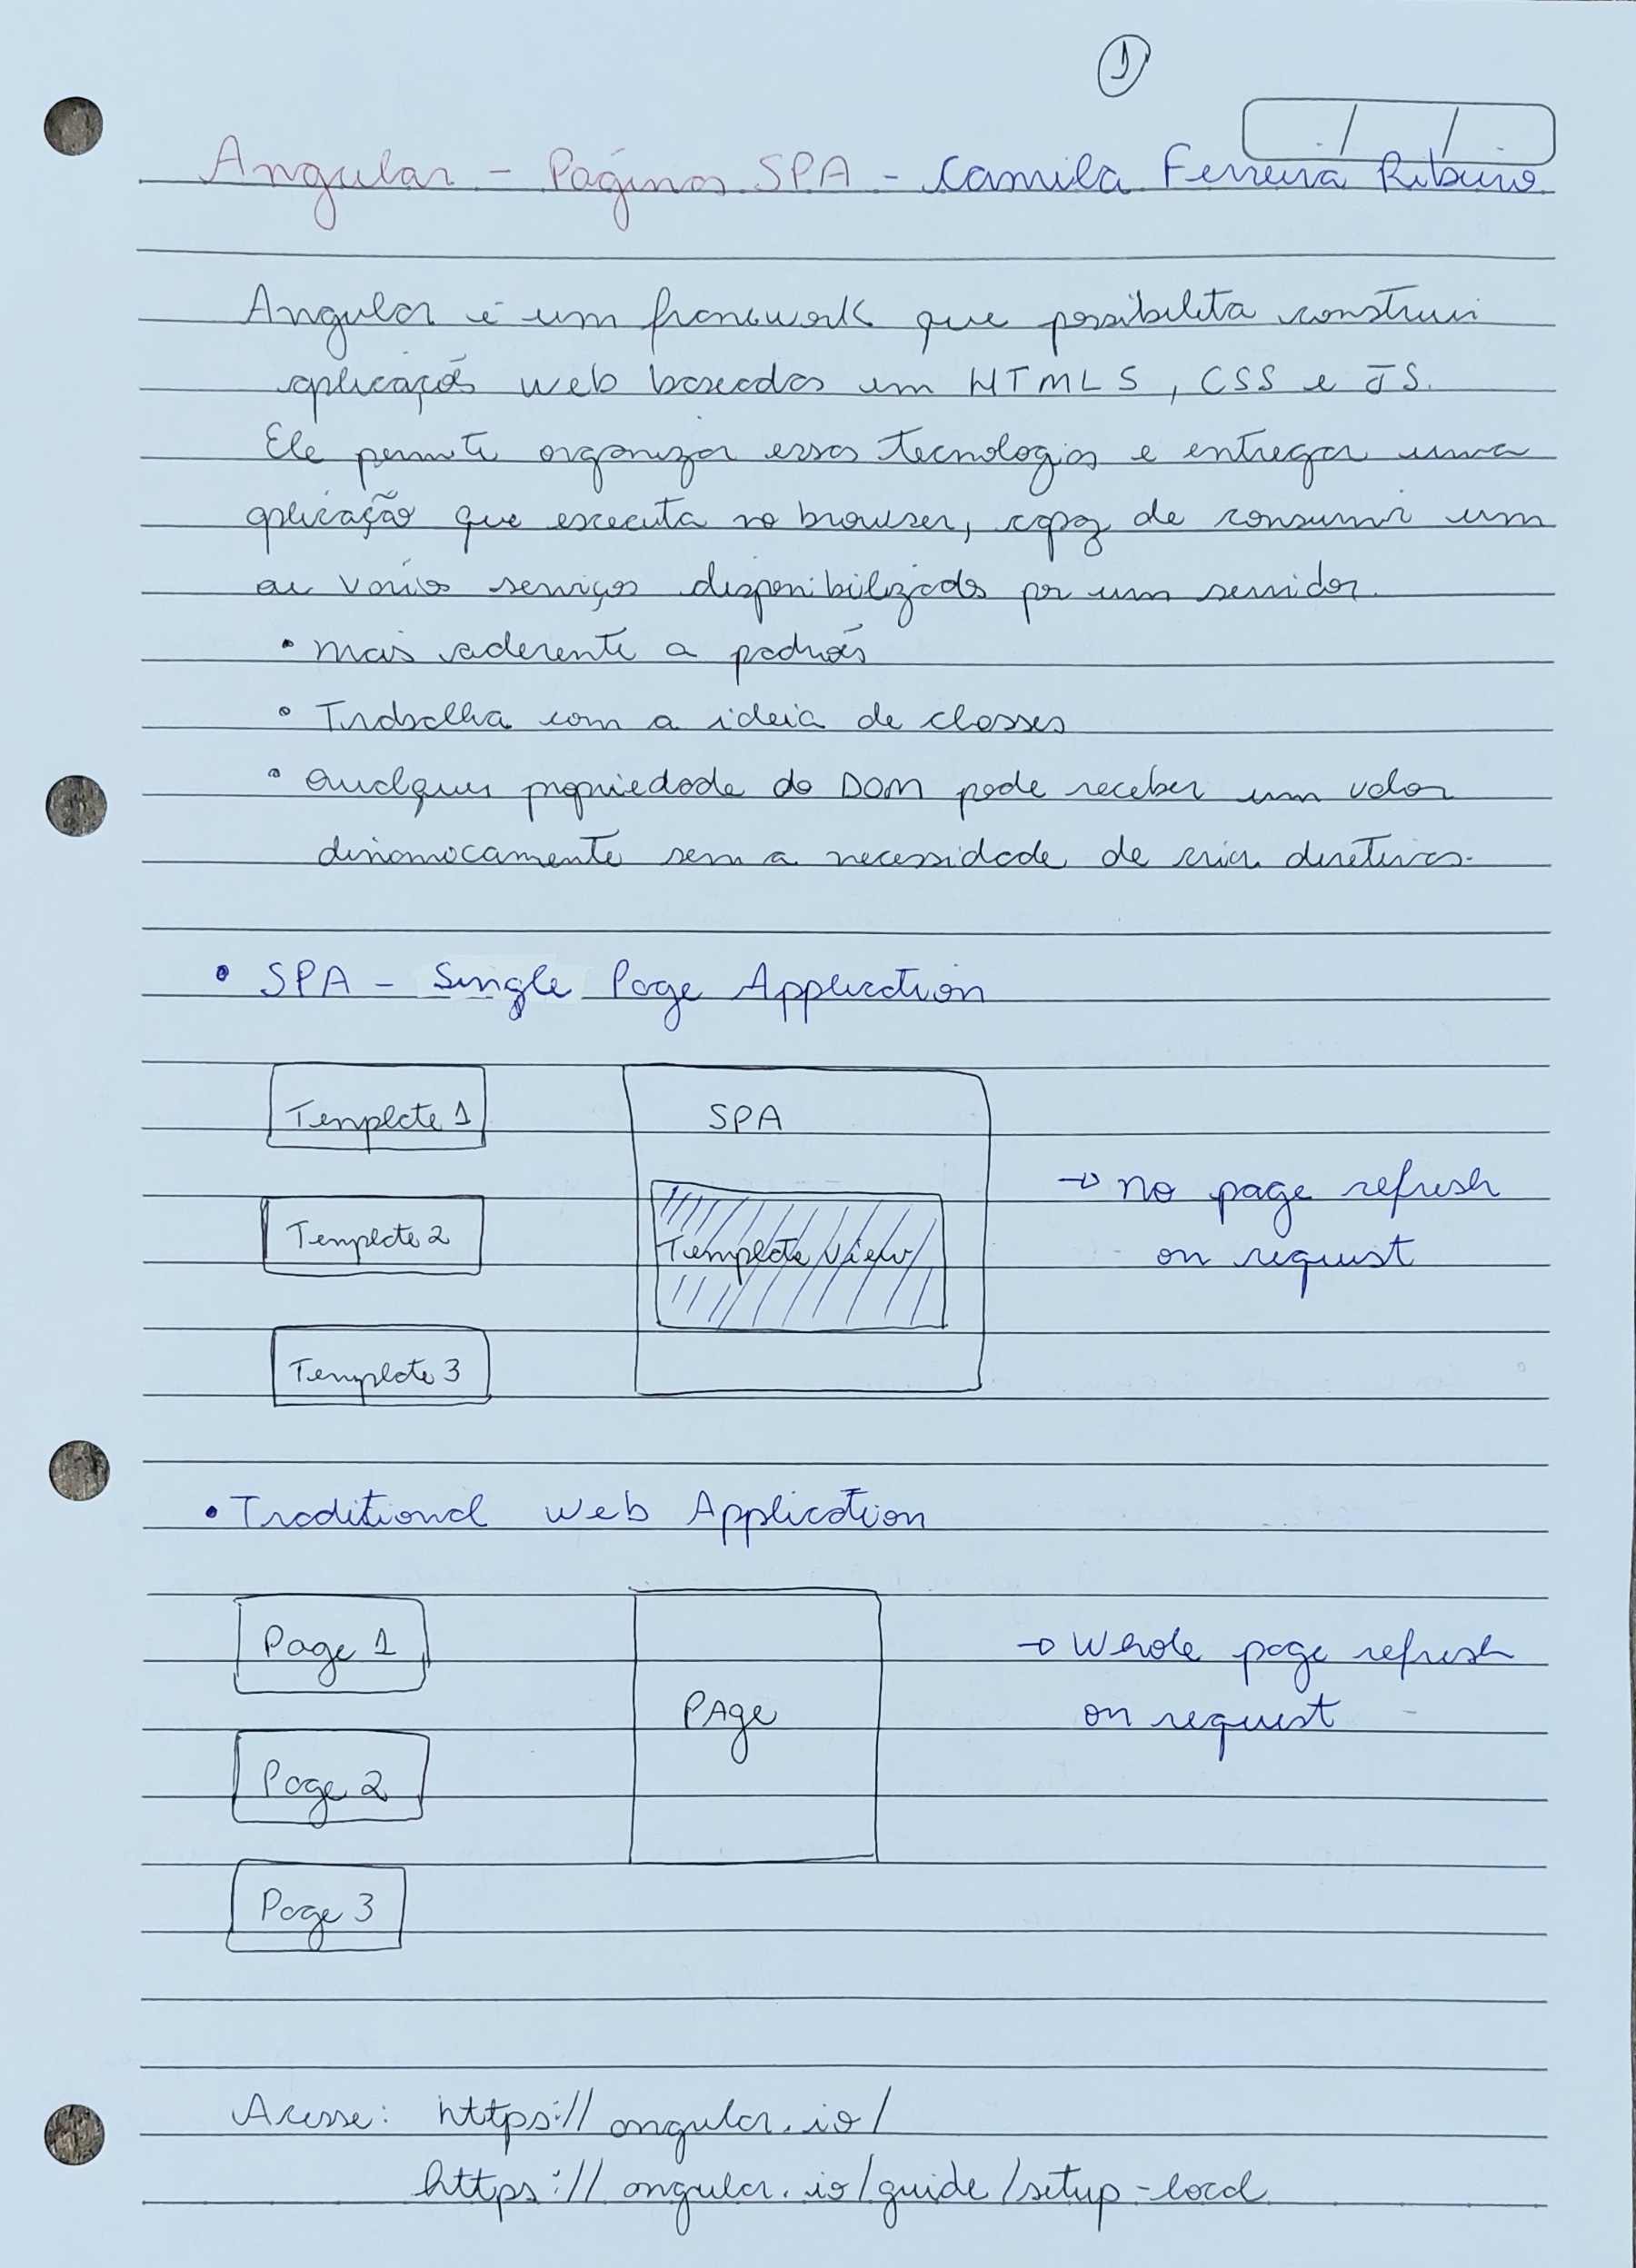 1
/ /
Angular - Páginas SPA - Camila Ferreira Ribeiro
Angular é um framework que possibilita construir
aplicações web baseadas em HTML5, CSS e JS.
Ele permite organizar essas tecnologias e entregar uma
aplicação que executa no browser, capaz de consumir um
ou vários serviços disponibilizados por um servidor.
• mais aderente a padrões
• Trabalha com a ideia de classes
• Qualquer propriedade do DOM pode receber um valor
dinamocamente sem a necessidade de criar diretivas.
• SPA - Single Page Application
Template 1
SPA
→ No page refresh
Template 2
Template view
on request
Template 3
• Traditional Web Application
Page 1
→ Whole page refresh
PAge
on request
Page 2
Page 3
Acesse: https://angular.io/
https://angular.io/guide/setup-local